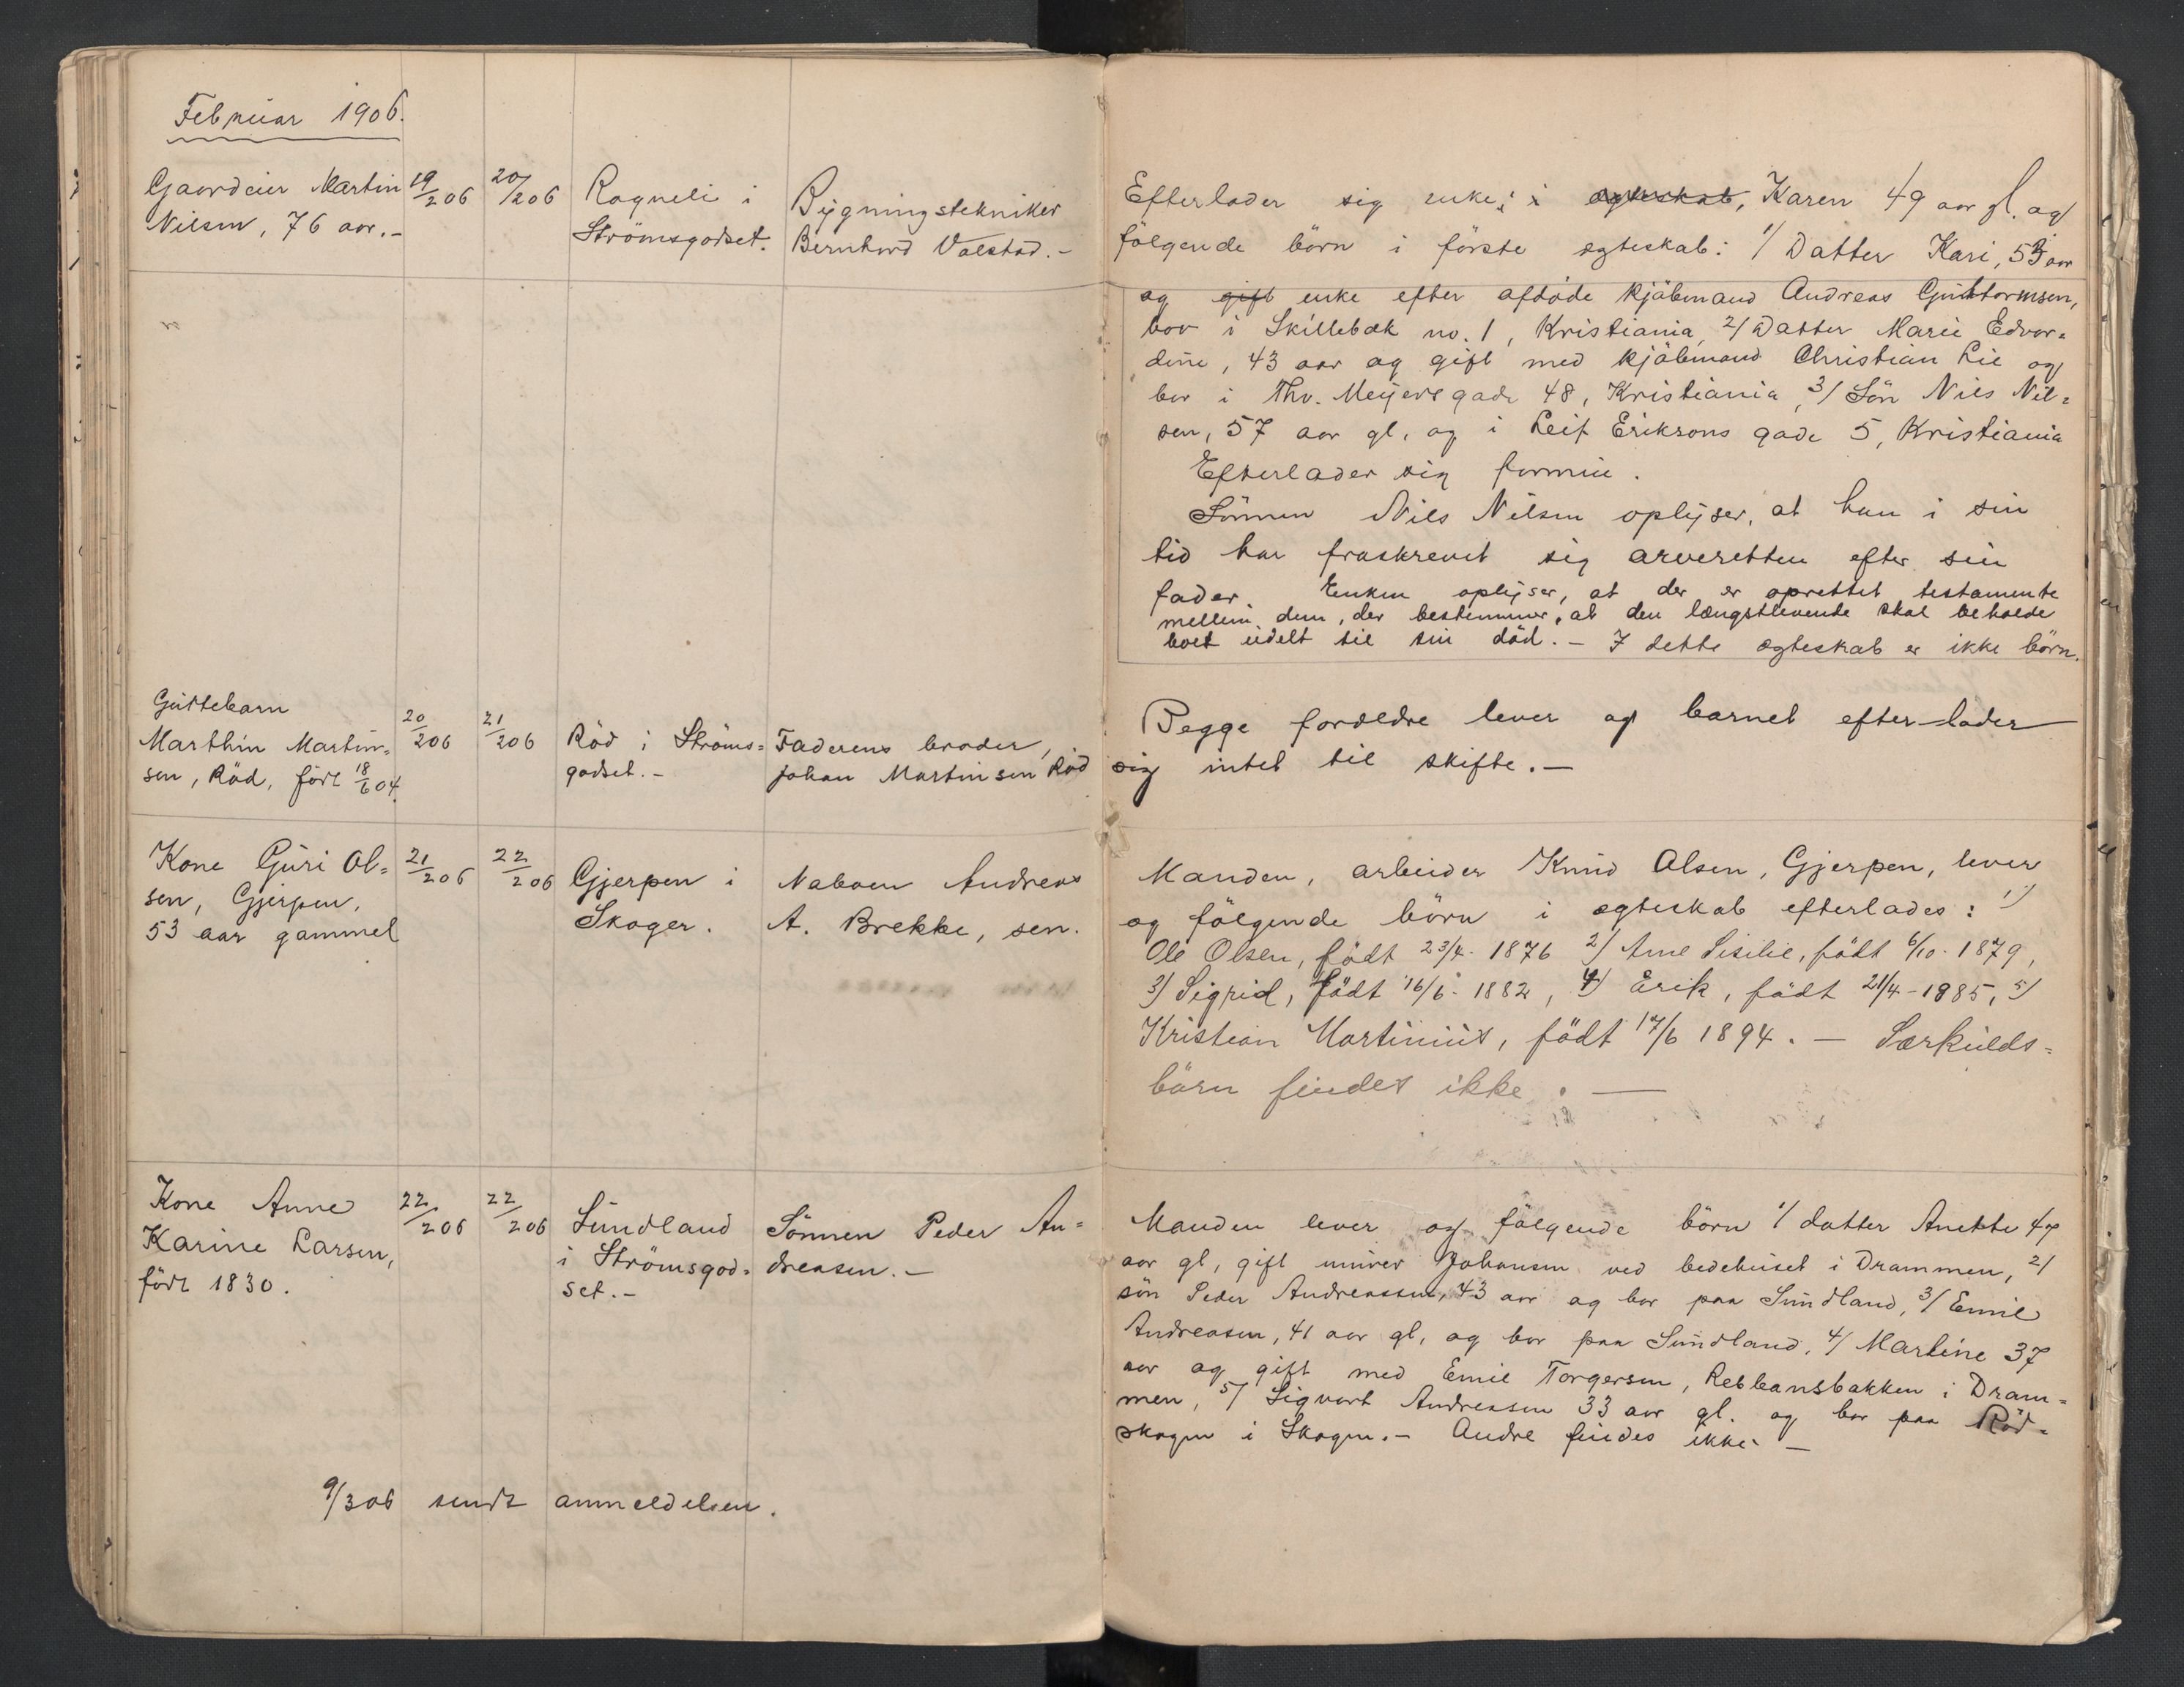 Februar 1906.
Gaardeier Martin
Nilsen, 76 aar.-
19/2 06
20/2 06
Ragneli i
Strömsgodset.
Bygningstekniker
Bernhard Valstad.-
Efterlader sig enke; i ægteskab, Karen 49 aar gl. og
følgende börn i förste ægteskab: 1/ Datter Kari, 53 aar
og gift enke efter afdöde kjöbmand Andreas Guttormsen,
bor i Skillebæk no. 1, Kristiania, 2/ Datter Marie Edvar=
dine, 43 aar og gift med kjöbmand Christian Lie og
bor i Thv. Meyers gade 48, Kristiania, 3/ Sön Nils Nil=
sen, 57 aar gl. og i Leif Eriksons gade 5, Kristiania
Efterlader sig formue.
Sönnen Nils Nilsen oplyser, at han i sin
tid har fraskrevet sig arveretten efter sin
fader. Enken oplyser, at der er oprettet testamente
mellem dem, der bestemmer, at den længstlevende skal beholde
boet udelt til sin död.- I dette ægteskab er ikke börn.
Guttebarn
Marthin Martin=
sen, Röd, född 18/6 04.
20/2 06
21/2 06
Röd i Ströms=
godset.-
Faderens broder,
Johan Martinsen Röd
Begge forældre lever og barnet efterlader
sig intet til skifte.-
Kone Guri Ol=
sen, Gjerpen,
53 aar gammel
21/2 06
22/2 06
Gjerpen i
Skoger.
Naboen Andreas
A. Brekke, sen.
Manden, arbeider Knud Olsen, Gjerpen, lever
og fölgende börn i ægteskab efterlades: 1)
Ole Olsen, född 23/4-1876 2) Ane Sisilie, född 6/10-1879,
3) Sigrid, född 16/6-1882, 4) Erik, född 21/4-1885, 5)
Kristian Martinius, född 17/6 1894. - Særkulds=
börn findes ikke. -
Kone Anne
Karine Larsen,
född 1830.
22/2 06
22/2 06
Sundland
i Strömsgod=
set.-
Sönnen Peder An=
dreasen.-
Manden lever og fölgende börn 1/ datter Anette 47
aar gl, gift murer Johansen ved bedehuset i Drammen, 2/
sön Peder Andreassen, 43 aar og bor paa Sundland, 3/ Emil
Andreasen, 41 aar gl, og bor paa Sundland, 4/ Martine 37
aar og gift med Emil Torgersen, i Dram=
men, 5/ Sigvart Andreasen 33 aar gl. og bor paa Röd=
skogen i Skogen.- Andre findes ikke -
9/3 06 sendt anmeldelsen.